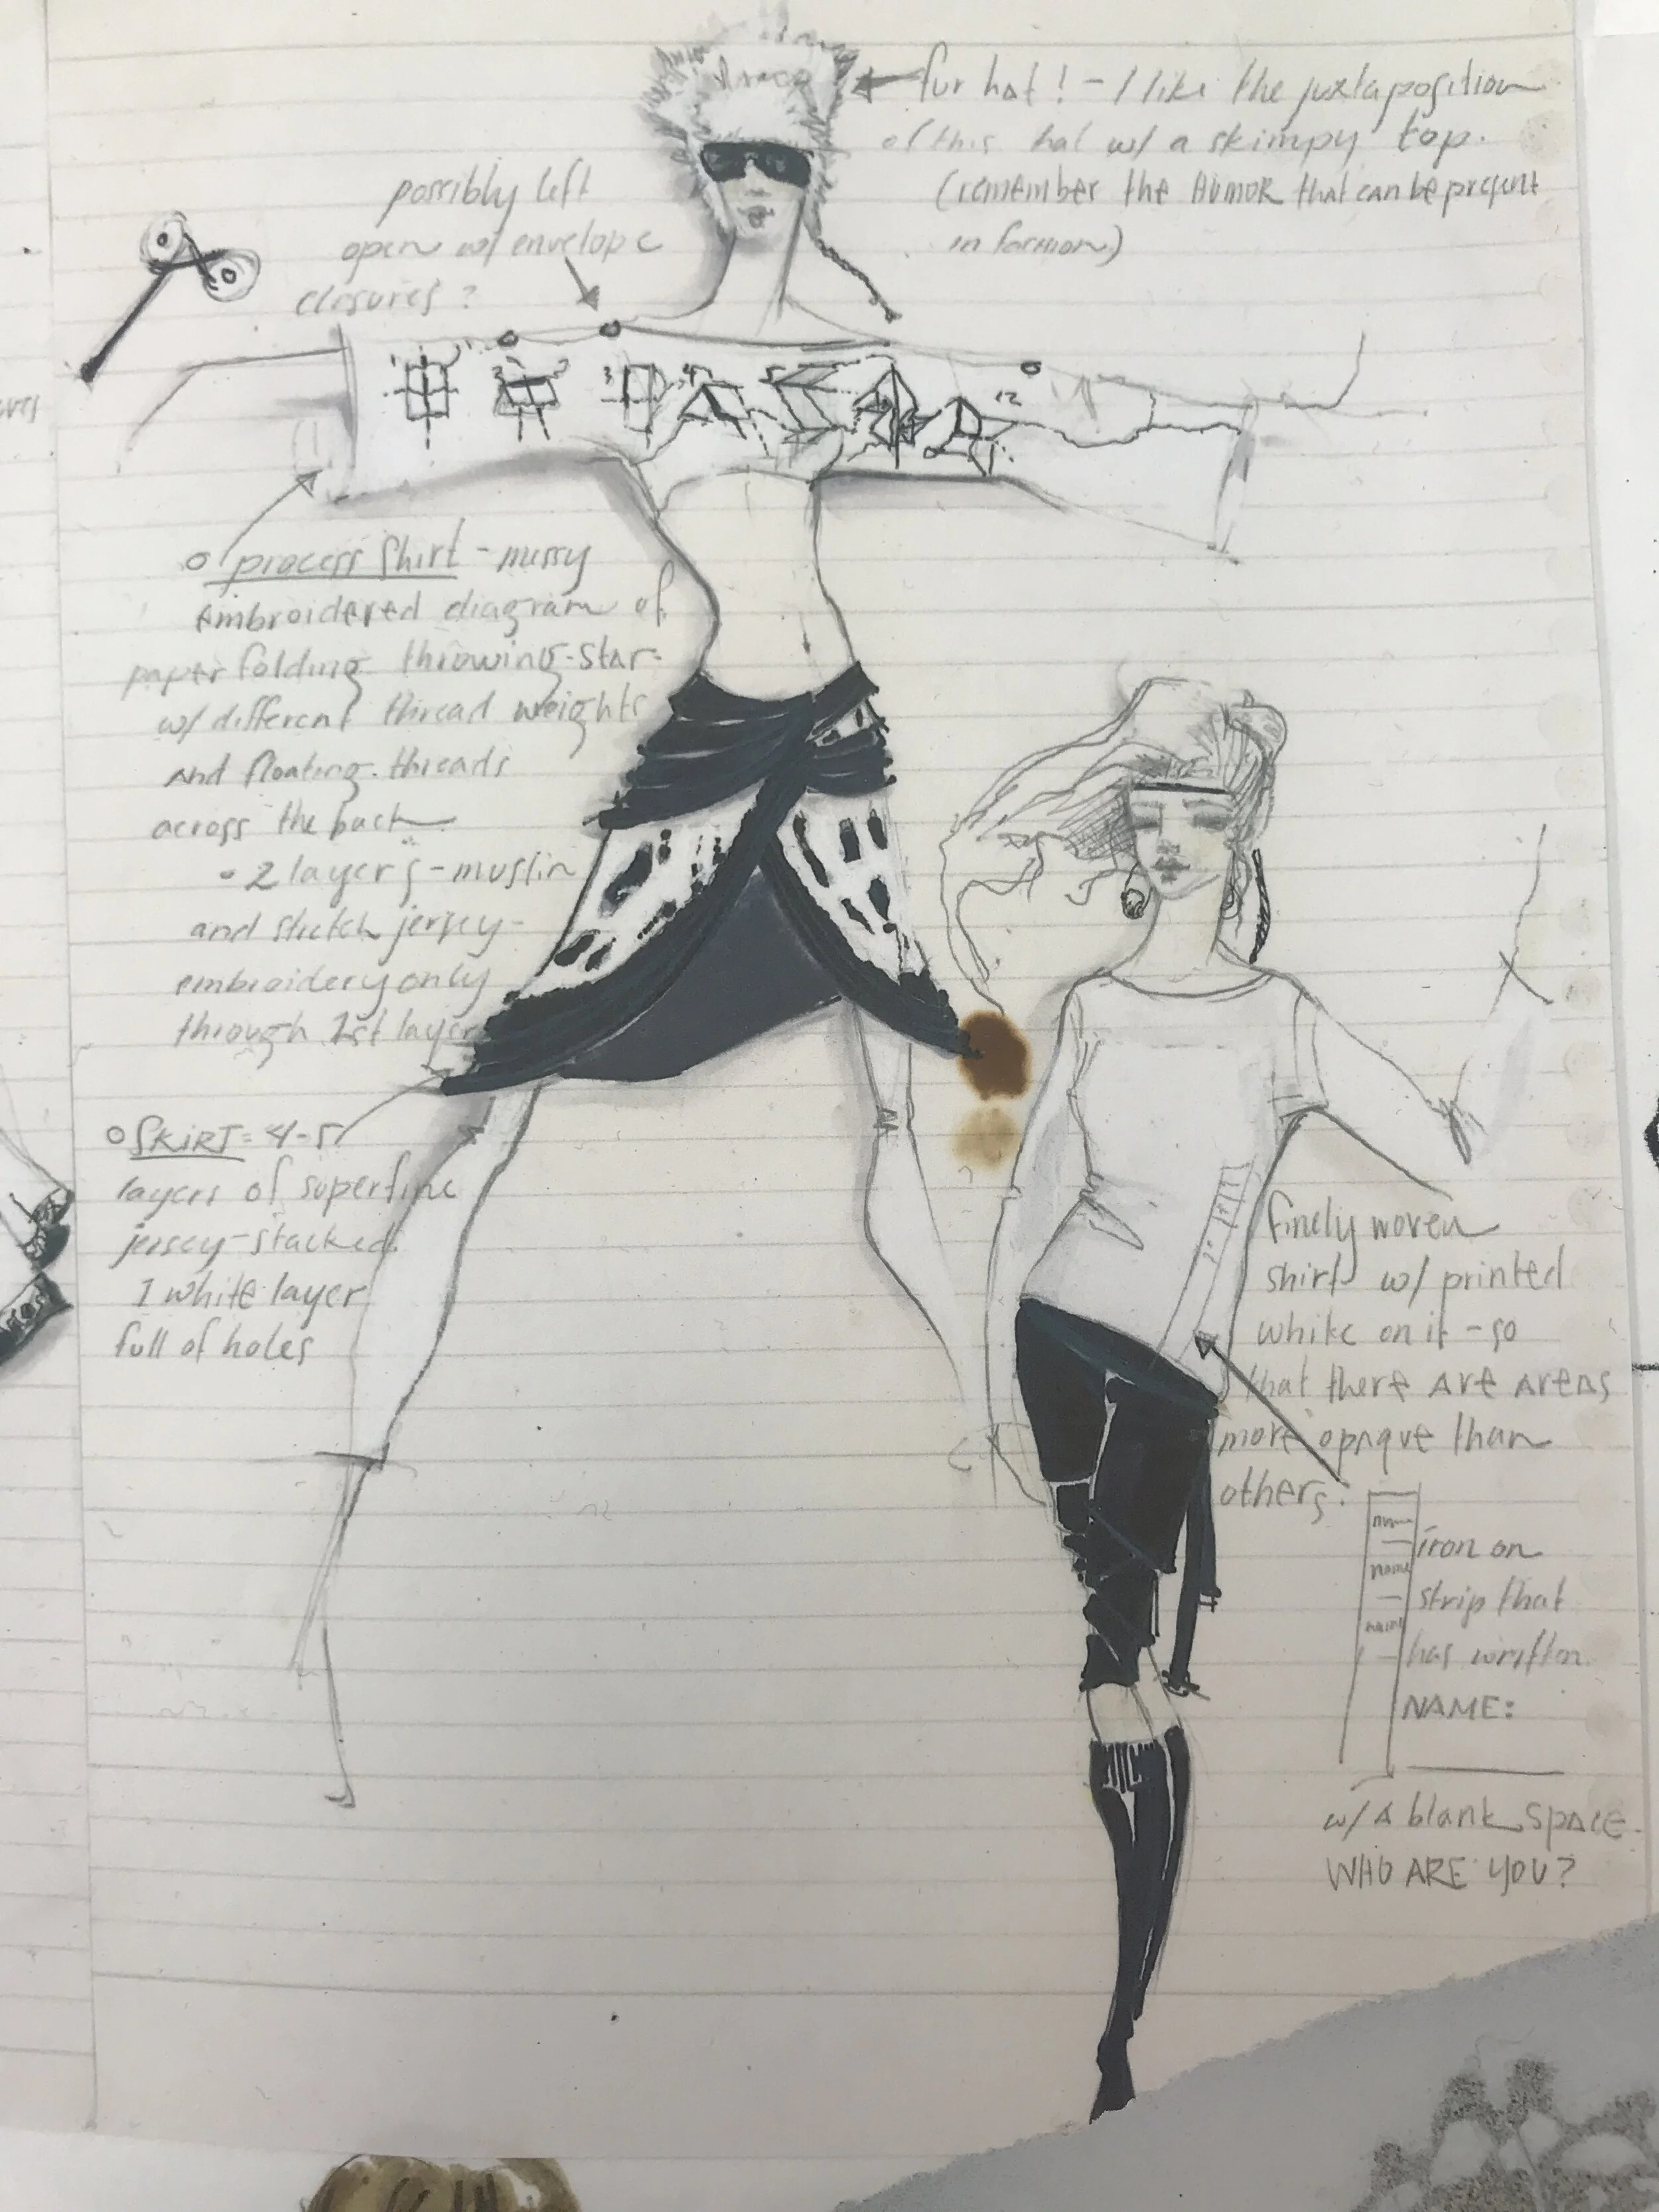 fur hat! - I like the juxtaposition
of this hat w/ a skimpy top.
(remember the HUMOR that can be present
in fashion)
possibly left
open w/ envelope
closures?
1 2 3 4 5 12
process shirt - messy
embroidered diagram of
paper folding throwing-star-
w/ different thread weights
and floating threads
across the back
- 2 layers - muslin
and stretch jersey-
embroidery only
through 1st layer
SKIRT = 4-5
layers of superfine
jersey-stacked
1 white layer
full of holes
finely woven
shirt w/ printed
white on it - so
that there are areas
more opaque than
others.
name
name
name
iron on
strip that
has written
NAME:
w/ a blank space.
WHO ARE YOU?